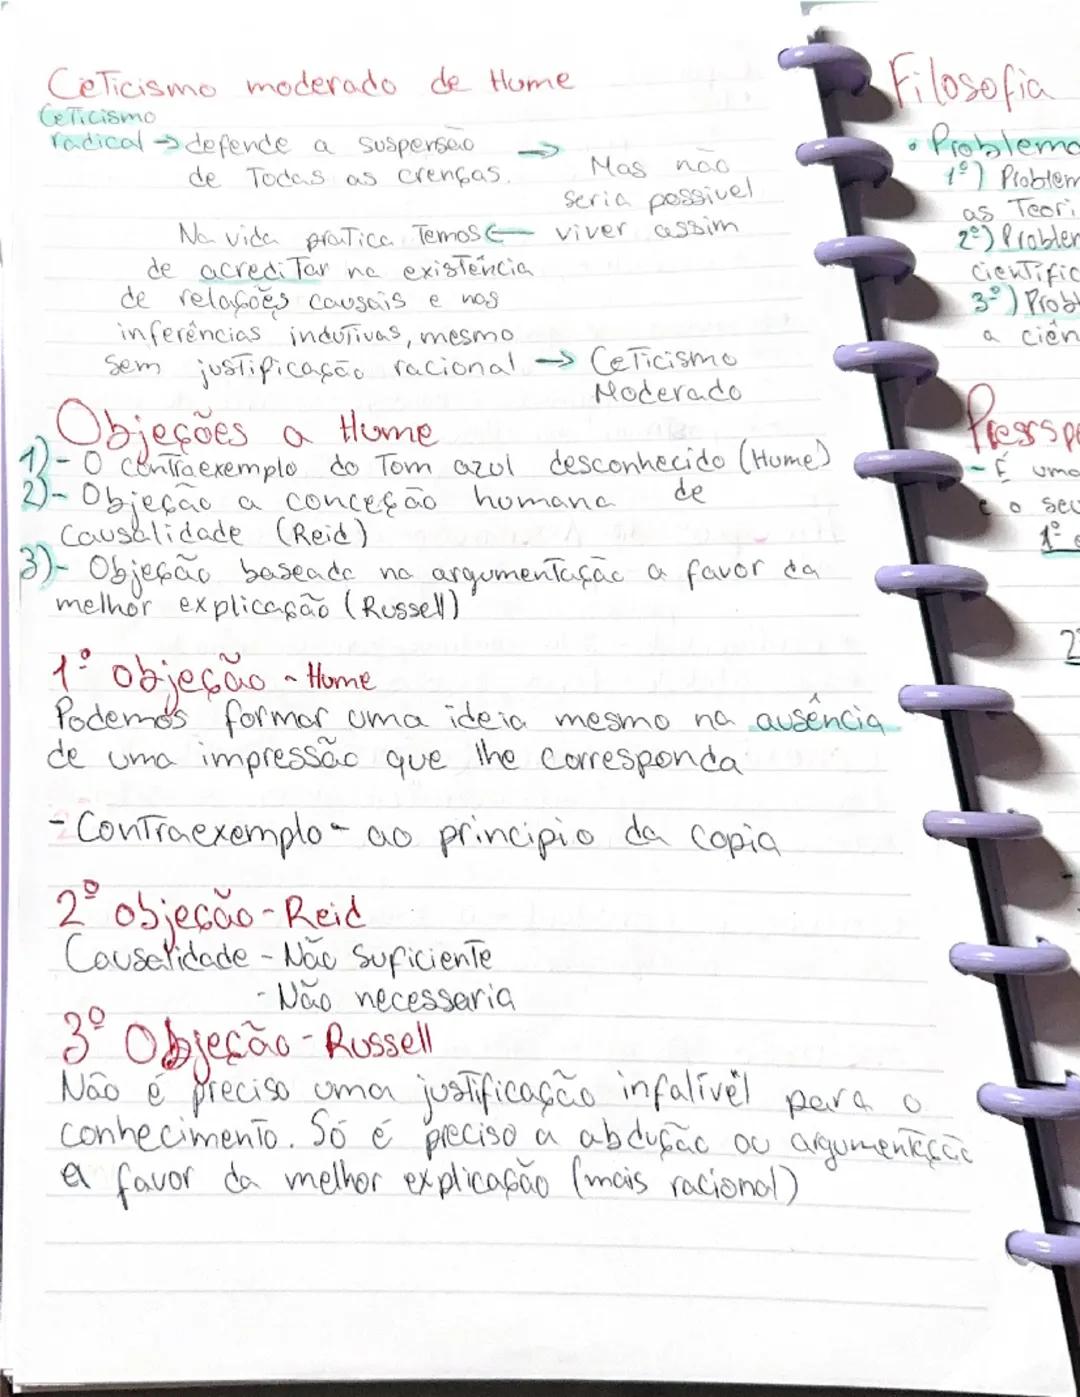 Ceticismo moderado de Hume
Ceticismo
radical → defende a suspensão →
de Todas as crenças.
Mas não
seria possivel
viver assim
Na vida pratica Temos ←
de acreditar na existência
de relações causais e nas
inferências indutivas, mesmo
sem justificação racional → Ceticismo
Moderado
Objeções a Hume
1) - O contraexemplo do Tom azul desconhecido (Hume)
2) - Objeção a conceção humana de
Causalidade (Reid)
3) - Objeção baseada na argumentação a favor da
melhor explicação (Russell)
1º objeção - Hume
Podemos formar uma ideia mesmo na ausência
de uma impressão que lhe corresponda
- Contraexemplo - ao principio da copia
2º objeção - Reid
Causalidade - Não suficiente
- Não necessaria
3º Objeção - Russell
Não é preciso uma justificação infalível para o
conhecimento. Só é preciso a abdução ou argumentação
a favor da melhor explicação (mais racional)
Filosofia
• Problema
1º) Problem
as Teori
2º) Problem
cientific
3º) Probl
a ciên
Presspe
- É uma
e o seu
1º e
2º